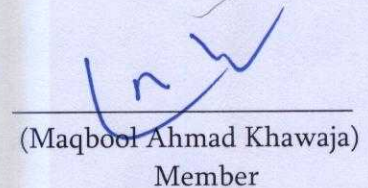 (Maqbool Ahmad Khawaja)
Member